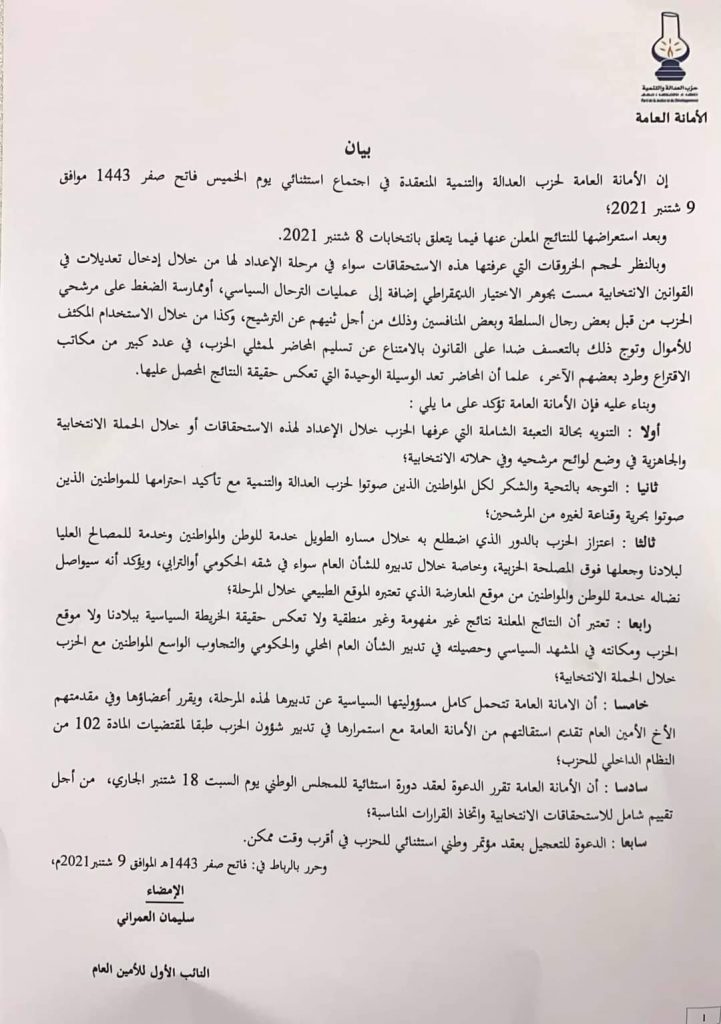 حزب العدالة والتنمية
Parti de la Justice et du Développement
الأمانة العامة
بيان
إن الأمانة العامة لحزب العدالة والتنمية المنعقدة في اجتماع استثنائي يوم الخميس فاتح صفر 1443 موافق
9 شتنبر 2021؛
وبعد استعراضها للنتائج المعلن عنها فيما يتعلق بانتخابات 8 شتنبر 2021.
وبالنظر لحجم الخروقات التي عرفتها هذه الاستحقاقات سواء في مرحلة الإعداد لها من خلال إدخال تعديلات في
القوانين الانتخابية مست بجوهر الاختيار الديمقراطي إضافة إلى عمليات الترحال السياسي، أوممارسة الضغط على مرشحي
الحزب من قبل بعض رجال السلطة وبعض المنافسين وذلك من أجل ثنيهم عن الترشيح، وكذا من خلال الاستخدام المكثف
للأموال وتوج ذلك بالتعسف ضدا على القانون بالامتناع عن تسليم المحاضر لممثلي الحزب، في عدد كبير من مكاتب
الاقتراع وطرد بعضهم الآخر، علما أن المحاضر تعد الوسيلة الوحيدة التي تعكس حقيقة النتائج المحصل عليها.
وبناء عليه فإن الأمانة العامة تؤكد على ما يلي :
أولا : التنويه بحالة التعبئة الشاملة التي عرفها الحزب خلال الإعداد لهذه الاستحقاقات أو خلال الحملة الانتخابية
والجاهزية في وضع لوائح مرشحيه وفي حملاته الانتخابية؛
ثانيا : التوجه بالتحية والشكر لكل المواطنين الذين صوتوا لحزب العدالة والتنمية مع تأكيد احترامها للمواطنين الذين
صوتوا بحرية وقناعة لغيره من المرشحين؛
ثالثا : اعتزاز الحزب بالدور الذي اضطلع به خلال مساره الطويل خدمة للوطن والمواطنين وخدمة للمصالح العليا
لبلادنا وجعلها فوق المصلحة الحزبية، وخاصة خلال تدبيره للشأن العام سواء في شقه الحكومي أوالترابي، ويؤكد أنه سيواصل
نضاله خدمة للوطن والمواطنين من موقع المعارضة الذي تعتبره الموقع الطبيعي خلال المرحلة؛
رابعا : تعتبر أن النتائج المعلنة نتائج غير مفهومة وغير منطقية ولا تعكس حقيقة الخريطة السياسية ببلادنا ولا موقع
الحزب ومكانته في المشهد السياسي وحصيلته في تدبير الشأن العام المحلي والحكومي والتجاوب الواسع المواطنين مع الحزب
خلال الحملة الانتخابية؛
خامسا : أن الامانة العامة تتحمل كامل مسؤوليتها السياسية عن تدبيرها لهذه المرحلة، ويقرر أعضاؤها وفي مقدمتهم
الأخ الأمين العام تقديم استقالتهم من الأمانة العامة مع استمرارها في تدبير شؤون الحزب طبقا لمقتضيات المادة 102 من
النظام الداخلي للحزب؛
سادسا : أن الأمانة العامة تقرر الدعوة لعقد دورة استثنائية للمجلس الوطني يوم السبت 18 شتنبر الجاري، من أجل
تقييم شامل للاستحقاقات الانتخابية واتخاذ القرارات المناسبة؛
سابعا : الدعوة للتعجيل بعقد مؤتمر وطني استثنائي للحزب في أقرب وقت ممكن.
وحرر بالرباط في: فاتح صفر 1443هـ الموافق 9 شتنبر2021م،
الإمضاء
سليمان العمراني
النائب الأول للأمين العام
1